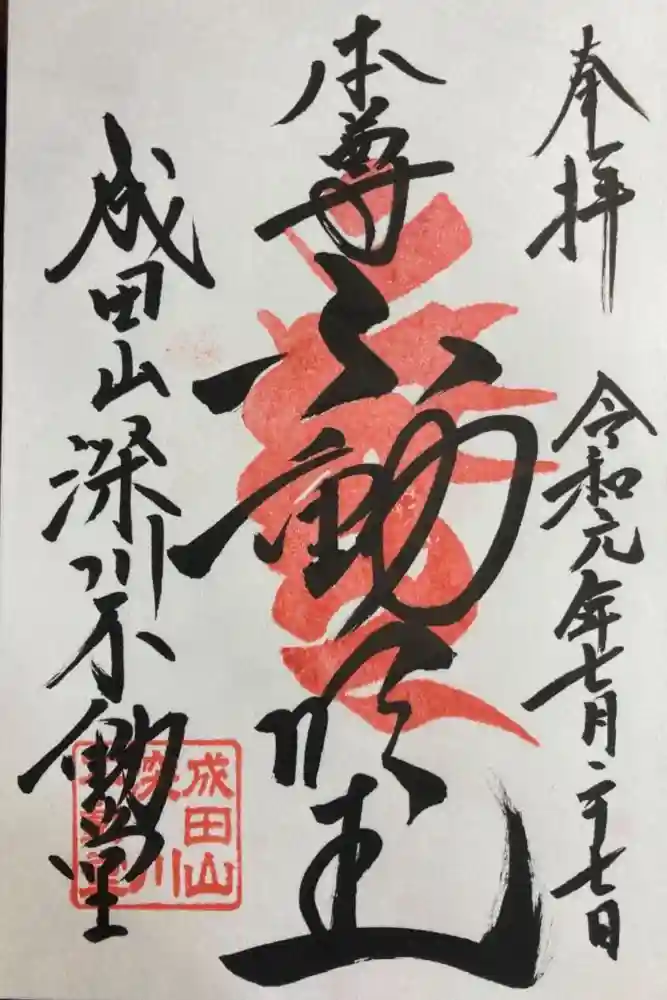 奉拝
令和元年七月二十七日
本尊
不動明王
成田山深川不動堂
成田山
深川
不動堂